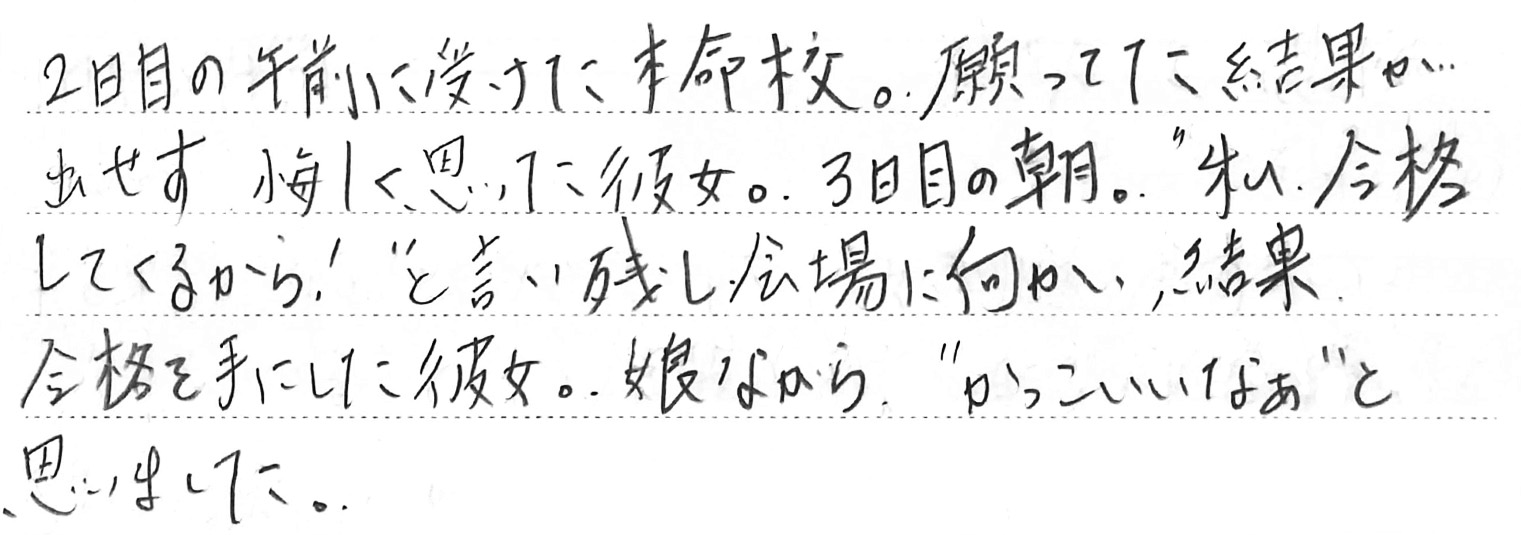 2日目の午前に受けた本命校。願ってた結果が…
出せず 悔しく思った彼女。3日目の朝。"私、合格
してくるから!"と言い残し会場に向かい、結果
合格を手にした彼女。娘ながら、"かっこいいなぁ"と
思いました。